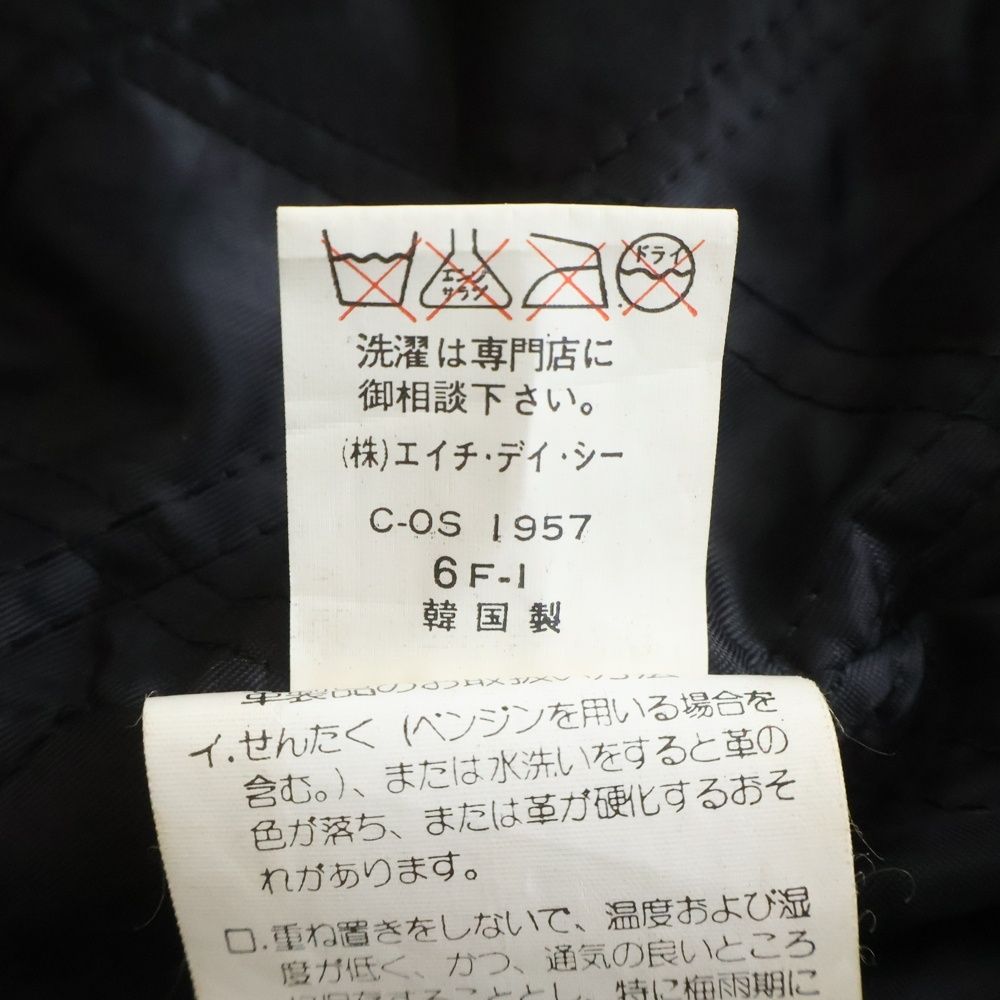 エンソ サラシ ドライ
洗濯は専門店に
御相談下さい。
(株)エイチ・デイ・シー
C-OS 1957
6F-1
韓国製
革製品のお取扱い方法
イ.せんたく(ベンジンを用いる場合を
含む。)、または水洗いをすると革の
色が落ち、または革が硬化するおそ
れがあります。
ロ.重ね置きをしないで、温度および湿
度が低く、かつ、通気の良いところ
に保存することとし、特に梅雨期に